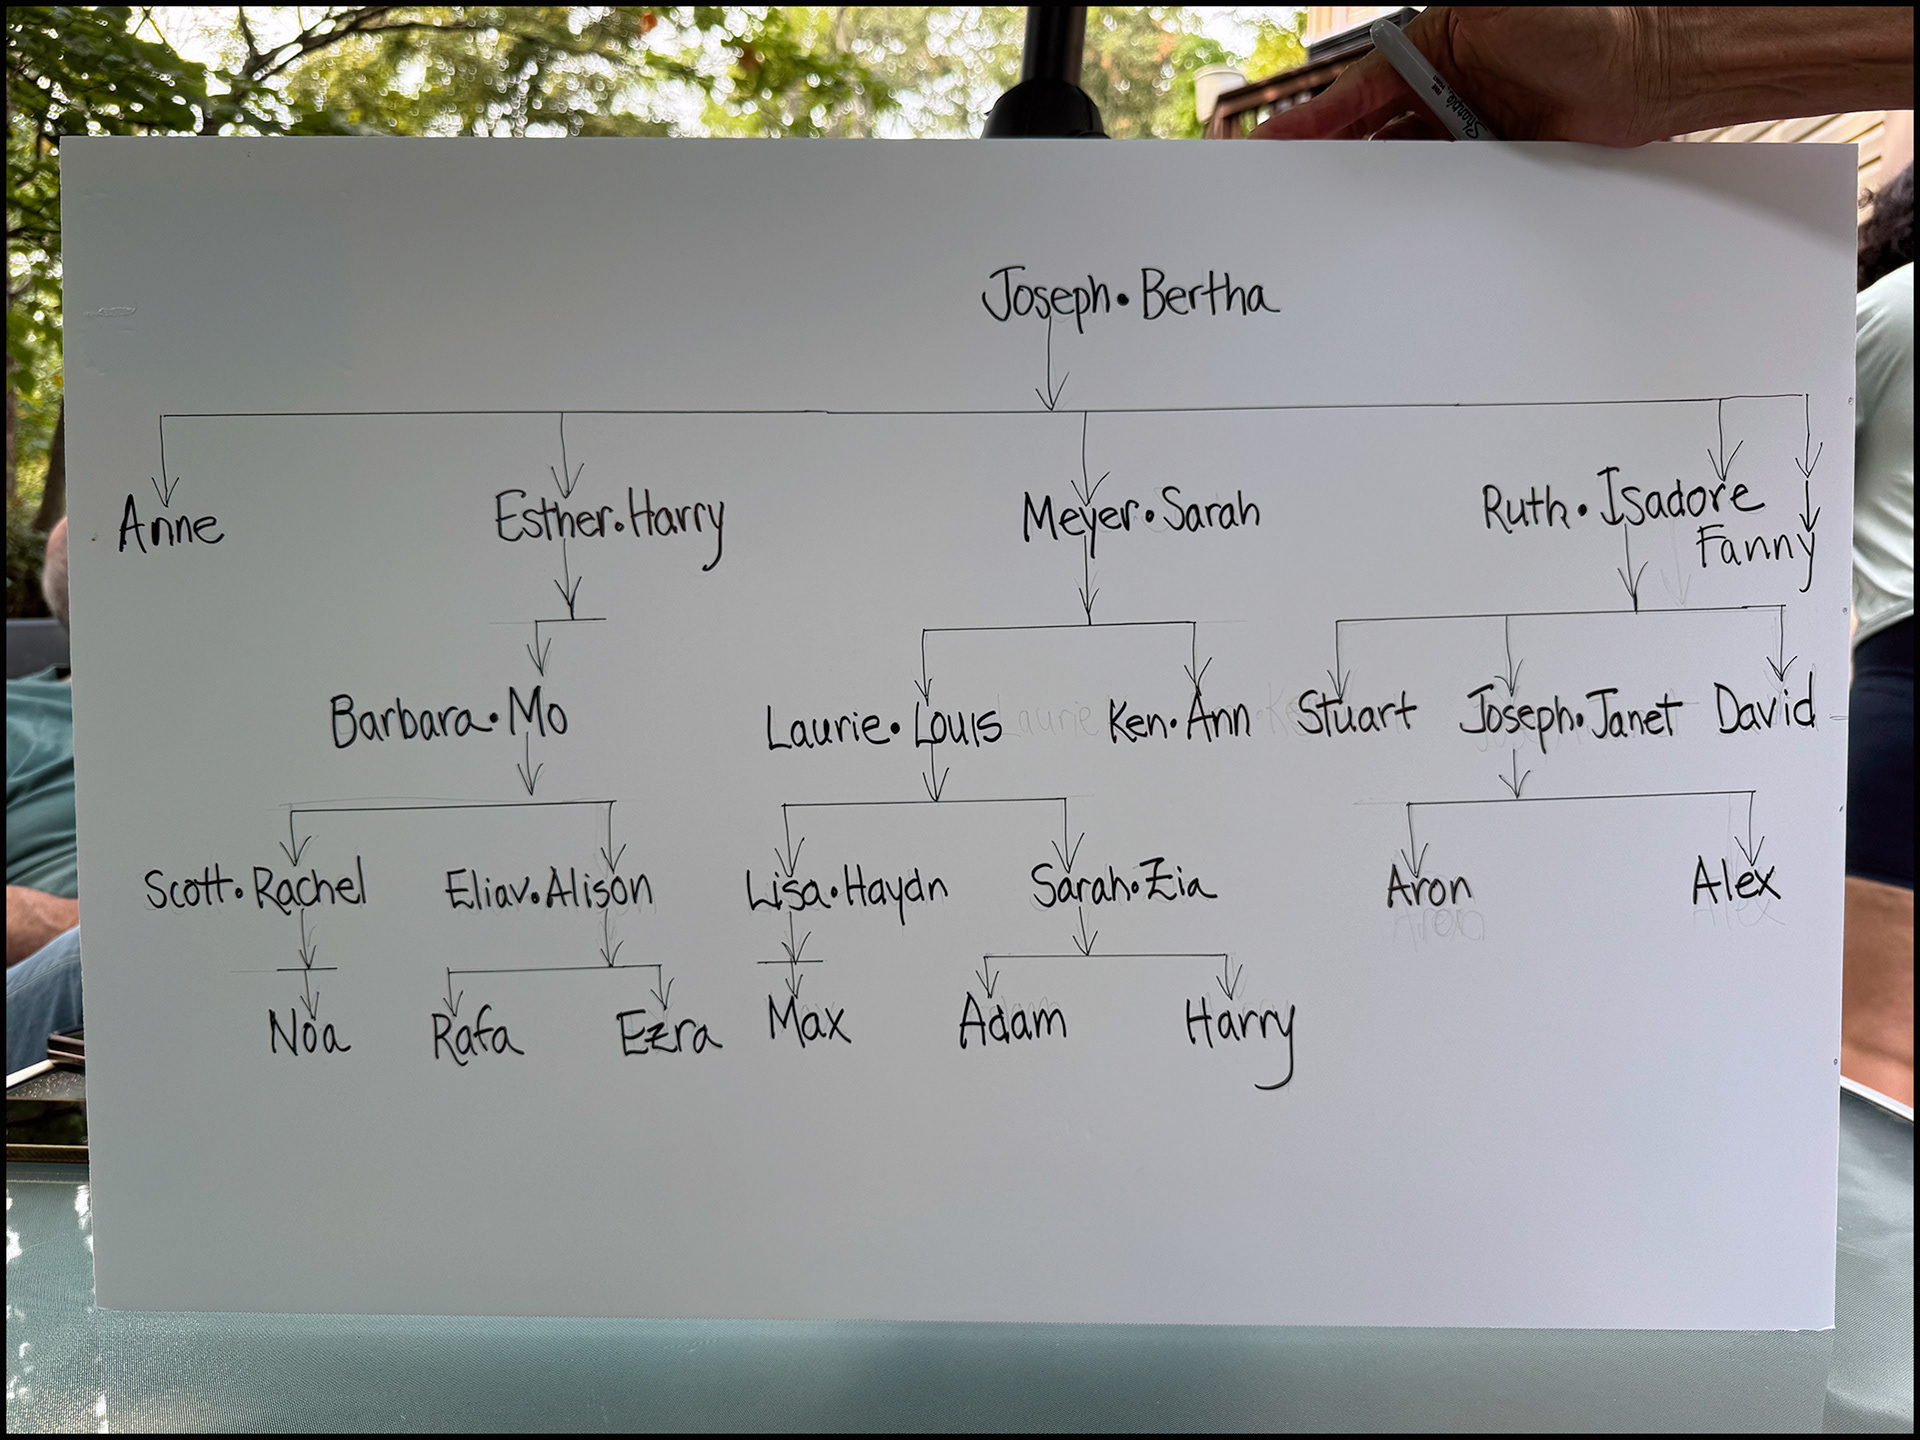 Sharpie
Joseph • Bertha
Anne
Esther • Harry
Meyer • Sarah
Ruth • Isadore
Fanny
Barbara • Mo
Laurie • Louis
Ken • Ann
Stuart
Joseph • Janet
David
Scott • Rachel
Eliav • Alison
Lisa • Haydn
Sarah • Zia
Aron
Alex
Noa
Rafa
Ezra
Max
Adam
Harry